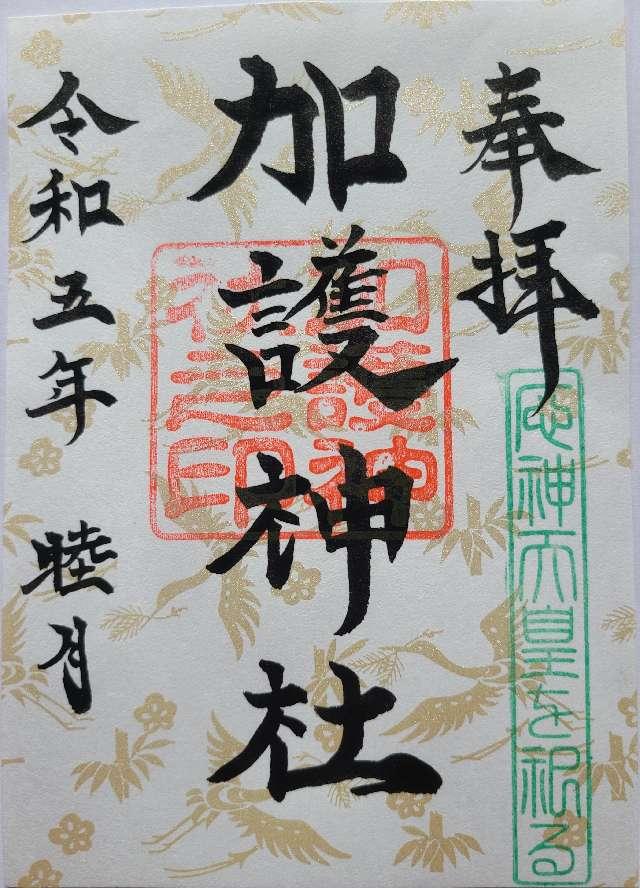 奉拝
應神天皇を祀る
加護神社
加護神
社之印
令和五年 睦月